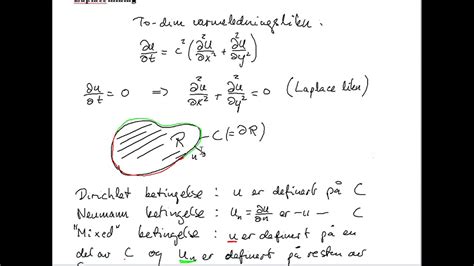 To-dim varmeledningslikn.
∂u/∂t = c² (∂²u/∂x² + ∂²u/∂y²)
∂u/∂t = 0 ⇒ ∂²u/∂x² + ∂²u/∂y² = 0 (Laplace likn)
R C (=∂R)
Dirichlet betingelse : u er definert på C
Neumann betingelse : uₙ = ∂u/∂n er -u- C
"Mixed" betingelse : u er definert på en
del av C og uₙ er definert på resten av